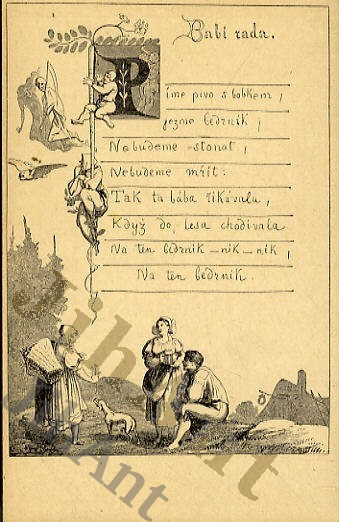 Babí rada.
Píme pivo s bobkem,
jezme bedrník,
Nebudeme stonat,
Nebudeme mřít:
Tak ta bába říkávala,
Když do lesa chodívala
Na ten bedrník–ník–ník,
Na ten bedrník.